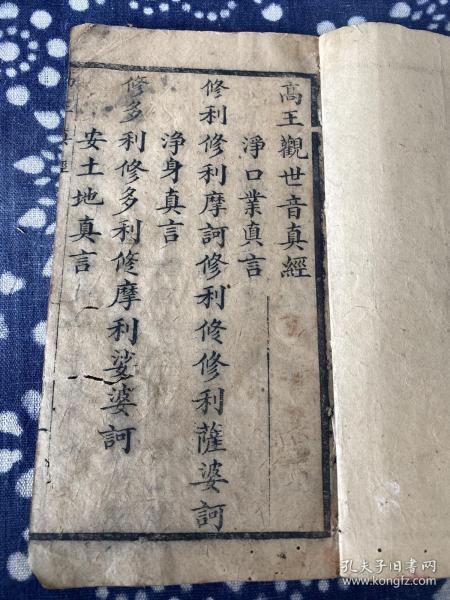 高王觀世音真經
淨口業真言
修利修利摩訶修利修修利薩婆訶
淨身真言
修多利修多利修摩利娑婆訶
安土地真言
經
孔夫子旧书网
www.kongfz.com